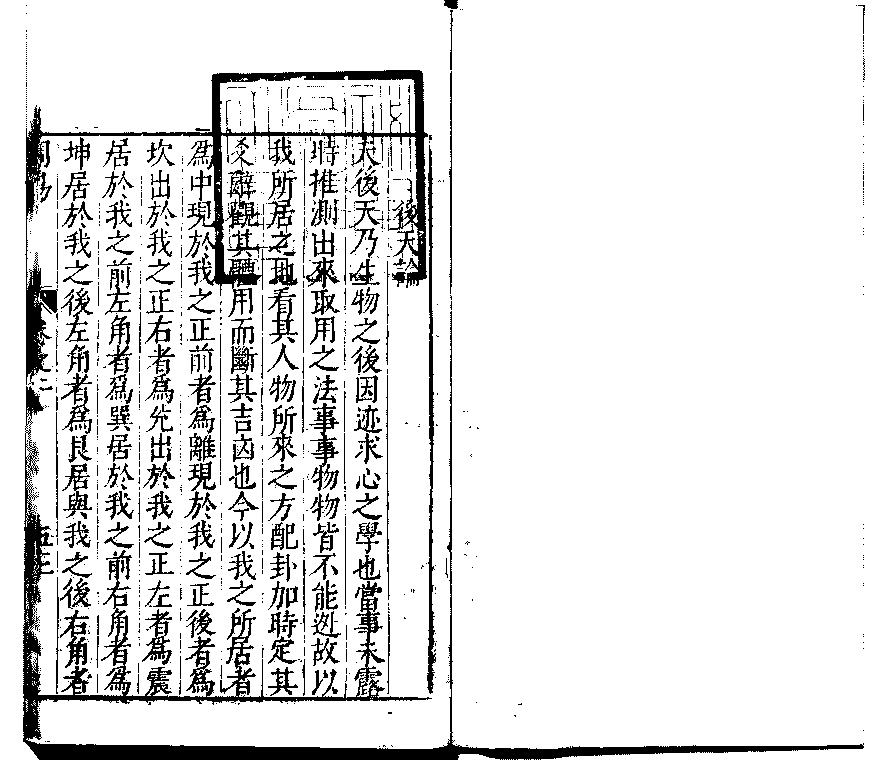 後天論
夫後天乃生物之後因迹求心之學也當事未露
時推測出來取用之法事事物物皆不能逃故以
我所居之地看其人物所來之方配卦加時定其
爻辭觀其體用而斷其吉凶也今以我之所居者
爲中現於我之正前者爲離現於我之正後者爲
坎出於我之正右者爲兌出於我之正左者爲震
居於我之前左角者爲巽居於我之前右角者爲
坤居於我之後左角者爲艮居與我之後右角者
周易 卷之二